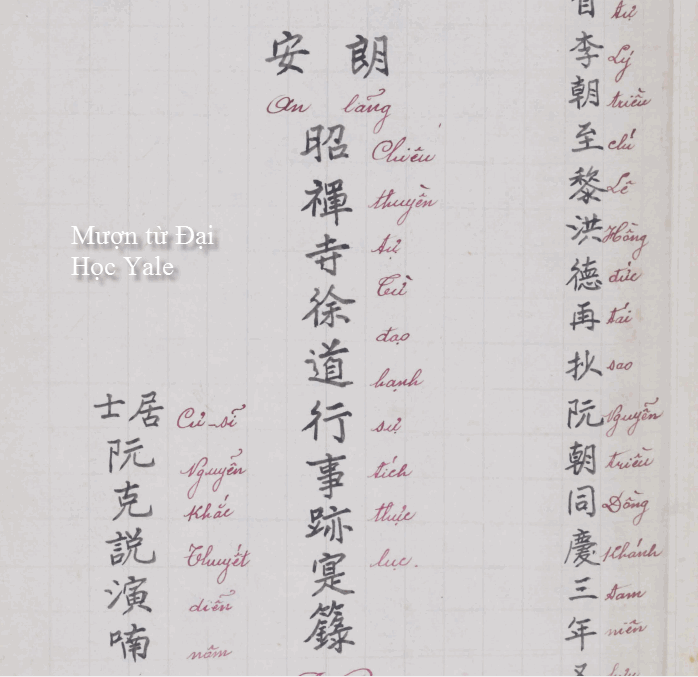 自李朝至黎洪德再抄阮朝同慶三年
Tự Lý triều chí Lê Hồng đức tái sao Nguyễn triều Đồng Khánh tam niên
安朗
An lãng
昭禪寺徐道行事跡寔籙
Chiêu thuyền tự Từ đạo hạnh sự tích thực lục.
居士
阮克説演喃
Cư-sĩ Nguyễn Khắc Thuyết diễn nôm
Mượn từ Đại
Học Yale